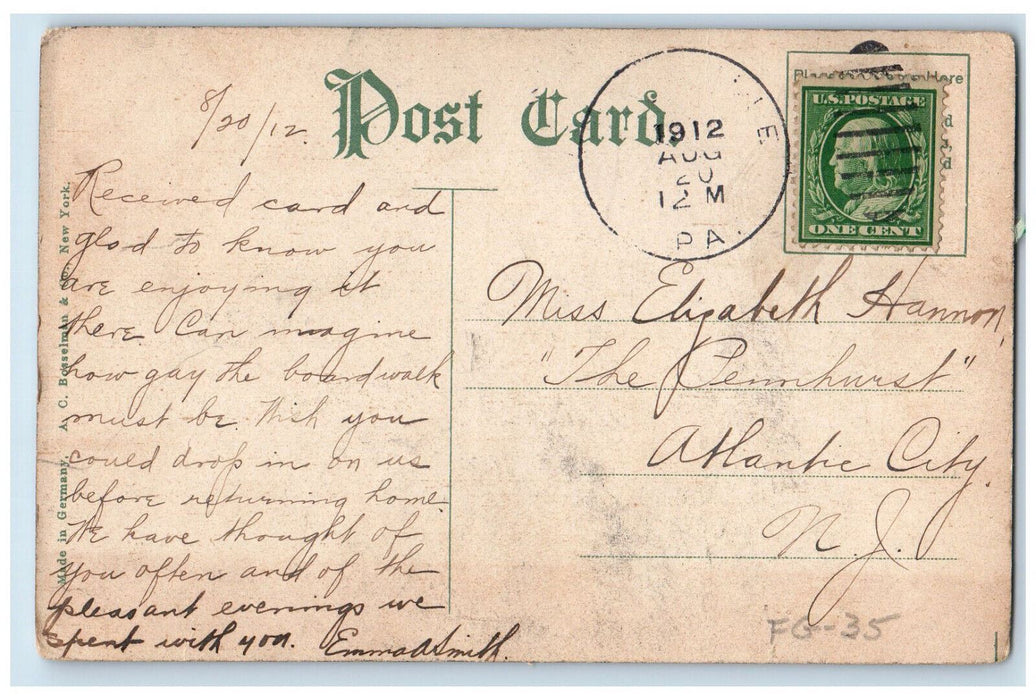 Post Card.
8/20/12
Received card and
glad to know you
are enjoying it
there Can imagine
how gay the boardwalk
must be. Wish you
could drop in on us
before returning home.
We have thought of
you often and of the
pleasant evenings we
spent with you. Emma A Smith.
Made in Germany, A. C. Bosselman & Co., New York.
1912
AUG
20
12 M
PA.
Here
U.S. POSTAGE
ONE CENT
Miss Elizabeth Hannon,
"The Pennhurst"
Atlantic City.
N. J.
FG-35